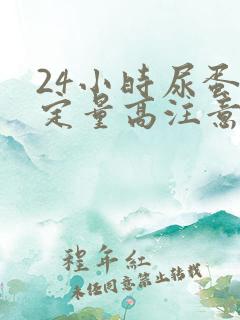 24小时尿蛋
定量高注意
程年红
未经同意禁止转载